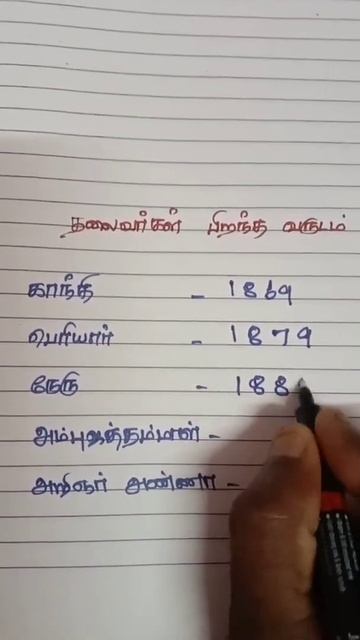 தலைவர்கள் பிறந்த வருடம்
காந்தி - 1869
பெரியார் - 1879
நேரு - 188
அம்புஜத்தம்மாள் -
அறிஞர் அண்ணா -